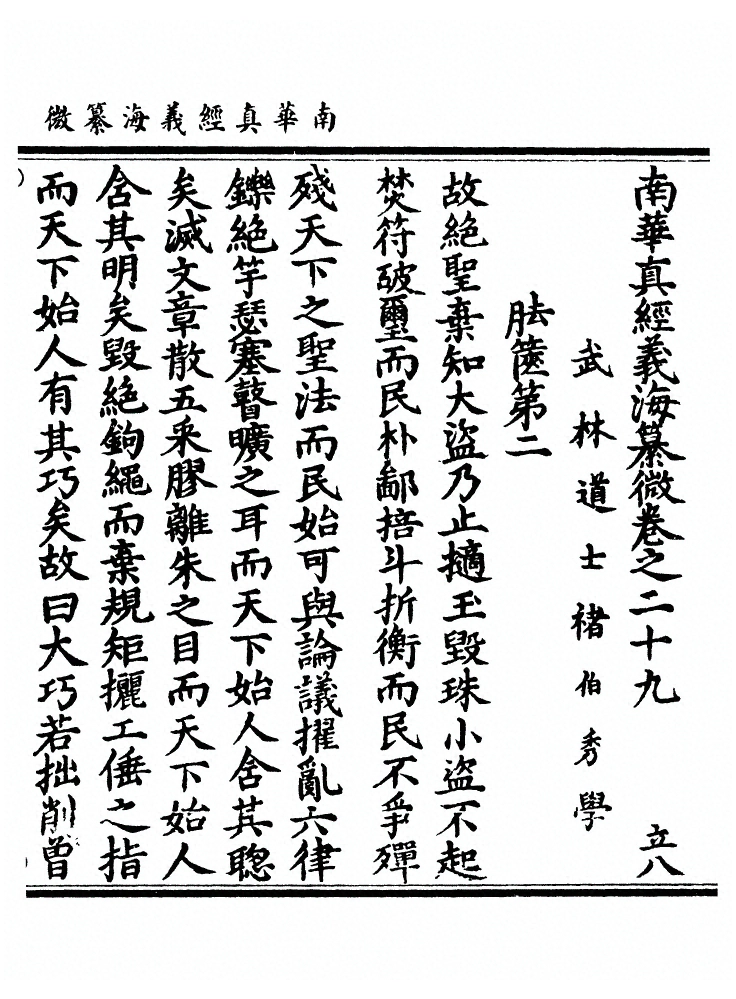 南華真經義海纂微
南華真經義海纂微卷之二十九 立八
武林道士褚伯秀學
胠篋第二
故絕聖棄知大盜乃止擿玉毀珠小盜不起
焚符破璽而民朴鄙掊斗折衡而民不爭殫
殘天下之聖法而民始可與論議擢亂六律
鑠絕竽瑟塞瞽曠之耳而天下始人含其聰
矣滅文章散五采膠離朱之目而天下始人
含其明矣毀絕鉤繩而棄規矩攦工倕之指
而天下始人有其巧矣故曰大巧若拙削曾